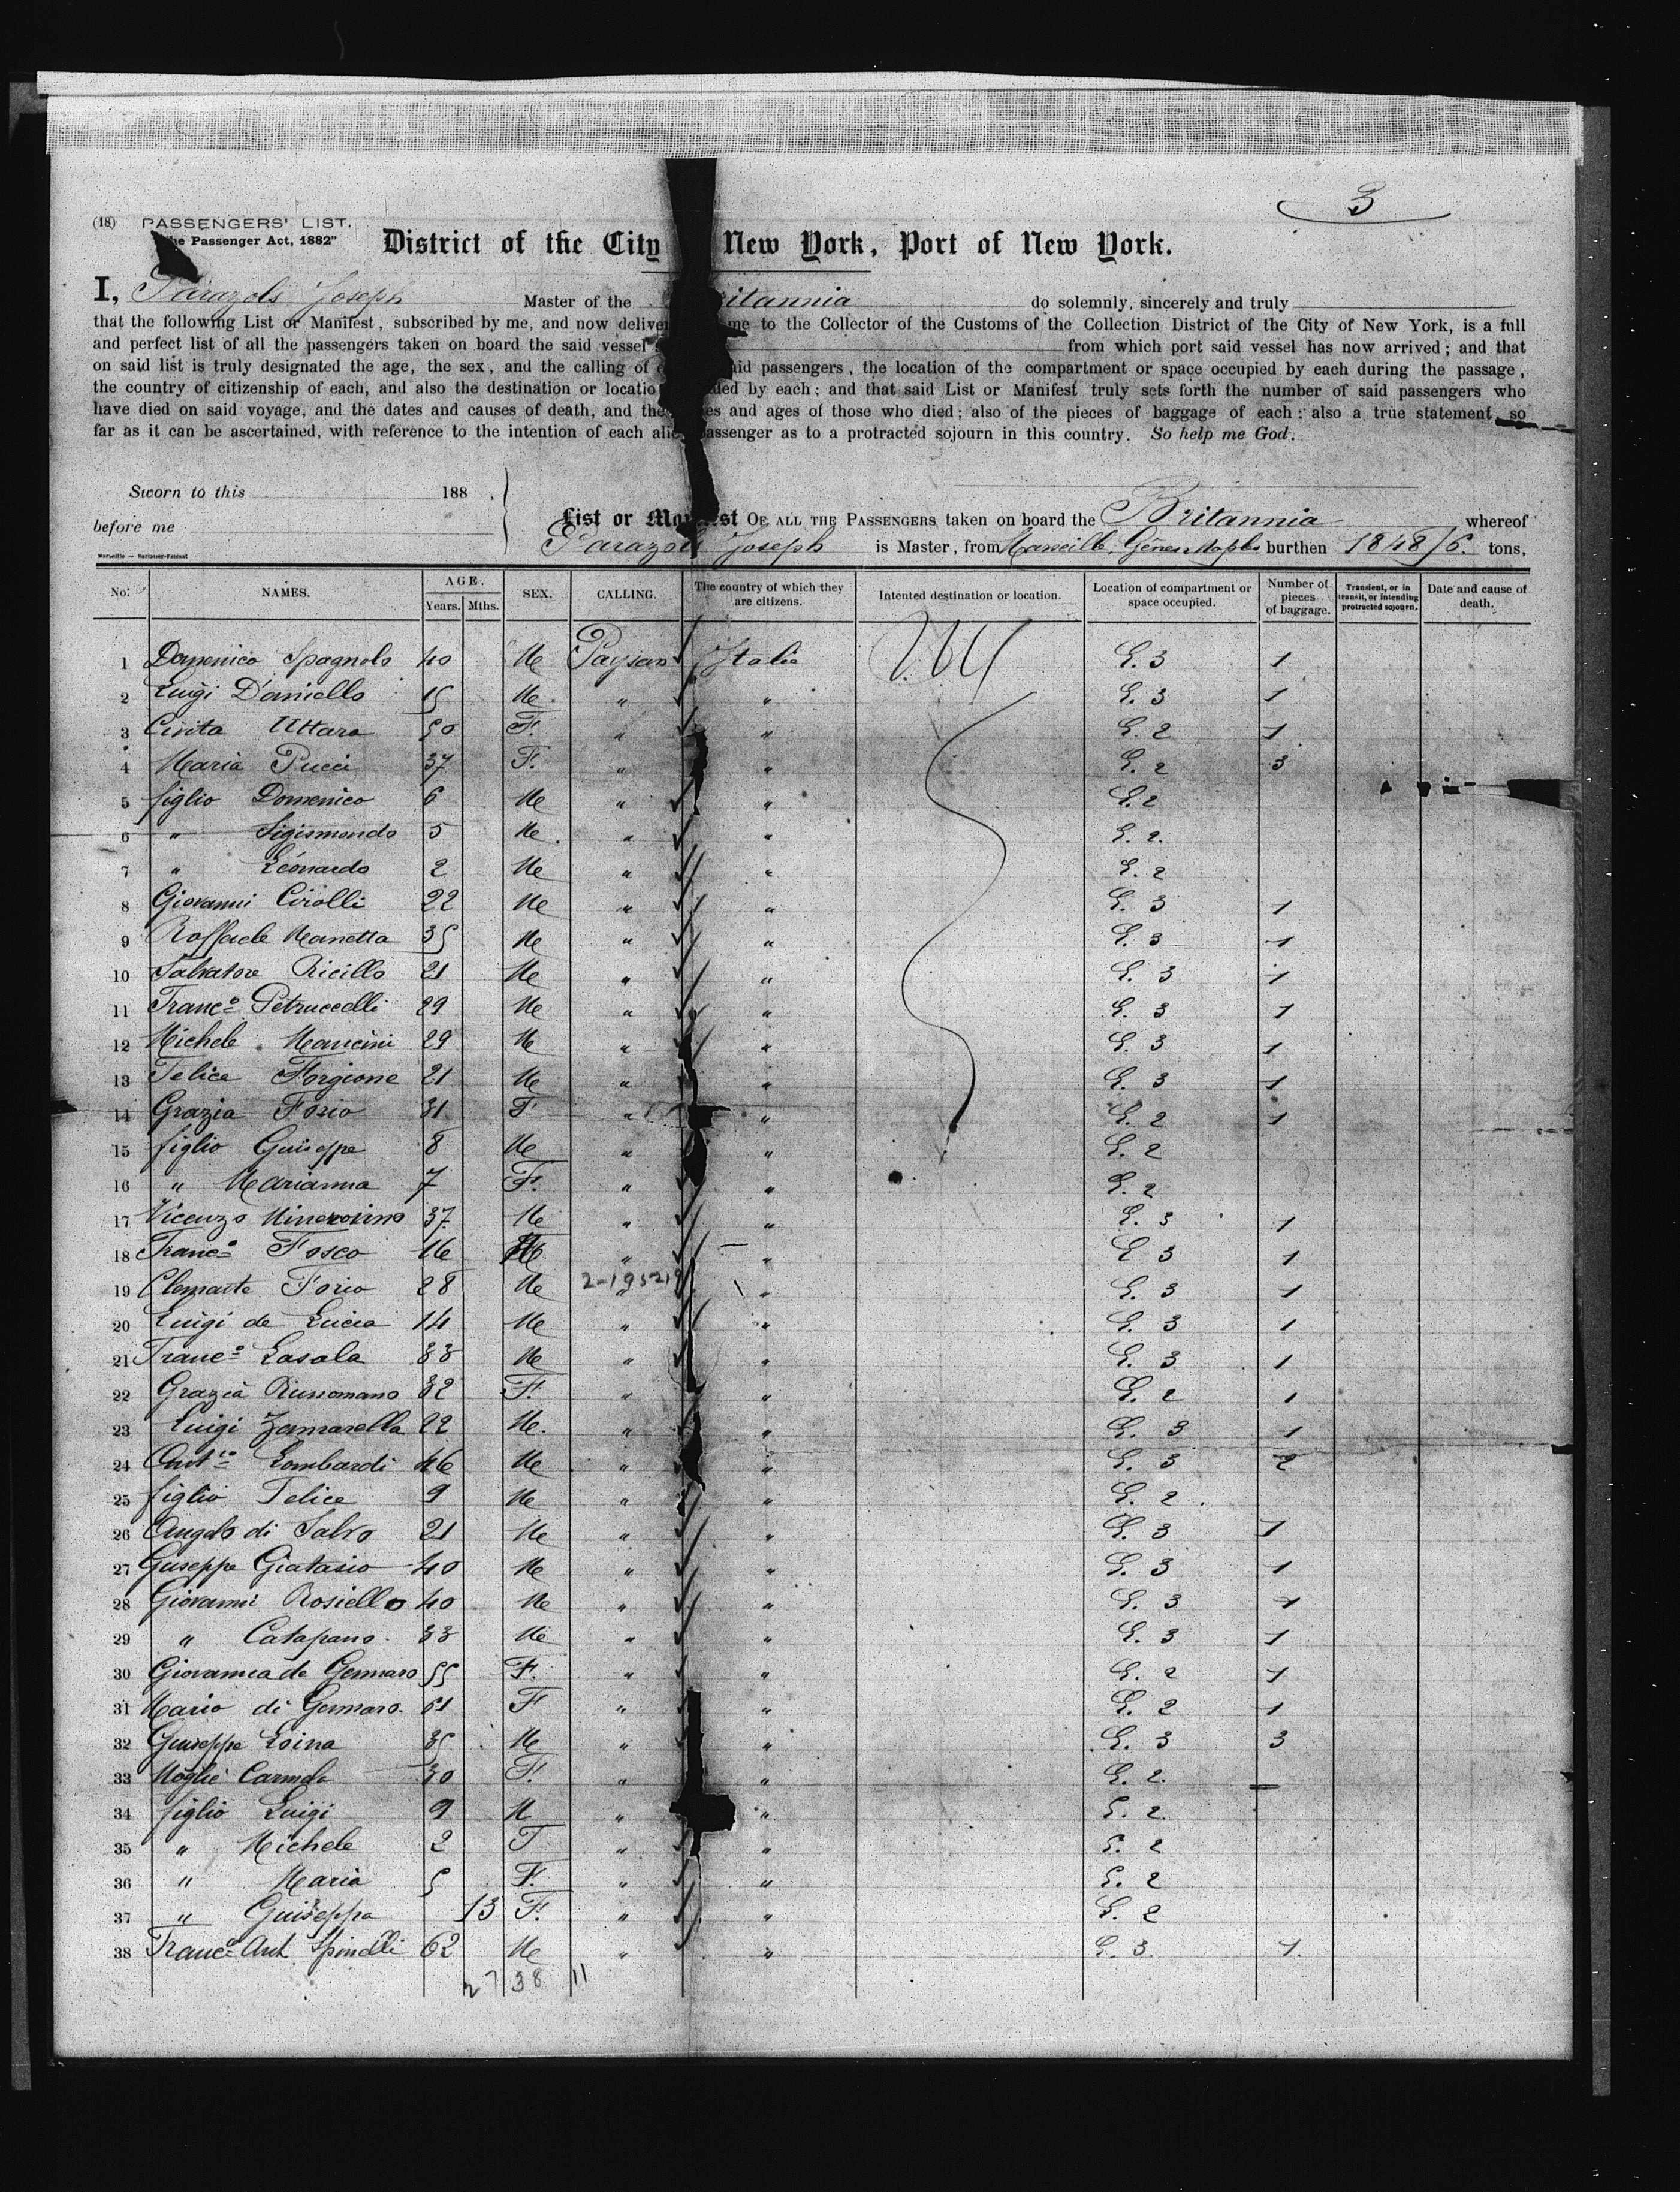 3
(18) PASSENGERS' LIST.
he Passenger Act, 1882"
District of the City New York, Port of New York.
I, Parazols Joseph Master of the itannia do solemnly, sincerely and truly
that the following List or Manifest, subscribed by me, and now deliver me to the Collector of the Customs of the Collection District of the City of New York, is a full
and perfect list of all the passengers taken on board the said vessel from which port said vessel has now arrived; and that
on said list is truly designated the age, the sex, and the calling of aid passengers, the location of the compartment or space occupied by each during the passage,
the country of citizenship of each, and also the destination or locatio ded by each; and that said List or Manifest truly sets forth the number of said passengers who
have died on said voyage, and the dates and causes of death, and the es and ages of those who died; also of the pieces of baggage of each; also a true statement, so
far as it can be ascertained, with reference to the intention of each ali assenger as to a protracted sojourn in this country. So help me God.
Sworn to this 188 .
before me
List or Ma st OF ALL THE PASSENGERS taken on board the Britannia whereof
Parazols Joseph is Master, from Marseille, Gênes Naples burthen 1848/6. tons,
No. NAMES. AGE. Years. Mths. SEX. CALLING. The country of which they are citizens. Intented destination or location. Location of compartment or space occupied. Number of pieces of baggage. Transient, or in transit, or intending protracted sojourn. Date and cause of death.
1 Domenico Spagnolo 40 M Paysan Italie E. 3 1
2 Luigi D'aniello 15 M. " " E. 3 1
3 Cinta Uttaro 50 F. " " E. 2 1
4 Maria Pucci 37 F. " " E. 2 3
5 figlio Domenico 6 M " " E. 2
6 " Sigismondo 5 M. " " E. 2.
7 " Léonardo 2 M " " E. 2
8 Giovanni Cirolli 22 M " " E. 3 1
9 Raffaele Manetta 35 M " " E. 3 1
10 Salvatore Ricillo 21 M " " E. 3 1
11 Franc.o Petruccelli 29 M " " E. 3 1
12 Michele Mancini 29 M " " E. 3 1
13 Felice Forgione 21 M " " E. 3 1
14 Grazia Forio 31 F " " E. 2 1
15 figlio Guiseppe 8 M " " E. 2
16 " Marianna 7 F. " " E. 2
17 Vicenzo Minervino 37 M " " E. 3 1
18 Franc.o Fosco 16 M " " E 3 1
19 Clemente Forio 28 M 2-195219 " " E. 3 1
20 Luigi de Lucia 14 M " " E. 3 1
21 Franc.o Lasala 33 M " " E. 3 1
22 Grazia Russomano 32 F. " " E. 2 1
23 Luigi Zamarella 22 M. " " E. 3 1
24 Ant.io Lombardi 46 M " " E. 3 2
25 figlio Felice 9 M " " E. 2.
26 Angelo di Salvo 21 M " " E. 3 1
27 Guseppe Giatasio 40 M " " E. 3 1
28 Giovanni Rosiello 40 M " " E. 3 1
29 " Catapano 33 M " " E. 3 1
30 Giovannea de Gennaro 55 F. " " E. 2 1
31 Maria di Gennaro. 61 F " " E. 2 1
32 Guiseppe Loina 35 M " " E. 3 3
33 Moglie Carmela 30 F. " " E. 2.
34 figlio Luigi 9 M " " E. 2.
35 " Michele 2 F " " E. 2
36 " Maria 5 F. " " E. 2
37 " Guiseppa 13 F. " " E. 2
38 Franc.o Ant. Spinelli 62 M " " E. 3. 1.
27 38 11